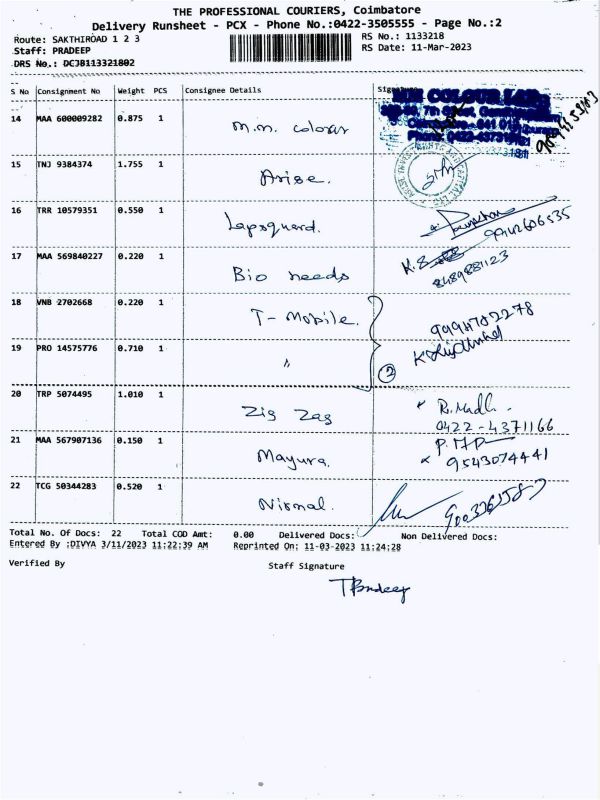 THE PROFESSIONAL COURIERS, Coimbatore
Delivery Runsheet - PCX - Phone No.:0422-3505555 - Page No.:2
Route: SAKTHIROAD 1 2 3
RS No.: 1133218
Staff: PRADEEP
RS Date: 11-Mar-2023
DRS No.: DCJB113321802
S No Consignment No Weight PCS Consignee Details Signature
14 MAA 600009282 0.875 1 M.M. Colour
15 TNJ 9384374 1.755 1 Arise.
16 TRR 10579351 0.550 1 Lapsguard.
17 MAA 569840227 0.220 1 Bio needs
8489881123
18 VNB 2702668 0.220 1 T-Mobile.
19 PRO 14575776 0.710 1 "
2
20 TRP 5074495 1.010 1 Zig Zag
0422-4371166
21 MAA 567907136 0.150 1 Mayura.
9543074441
22 TCG 50344283 0.520 1 Nirmal.
Total No. Of Docs: 22 Total COD Amt: 0.00 Delivered Docs: Non Delivered Docs:
Entered By :DIVYA 3/11/2023 11:22:39 AM Reprinted On: 11-03-2023 11:24:28
Verified By Staff Signature
T Pradeep